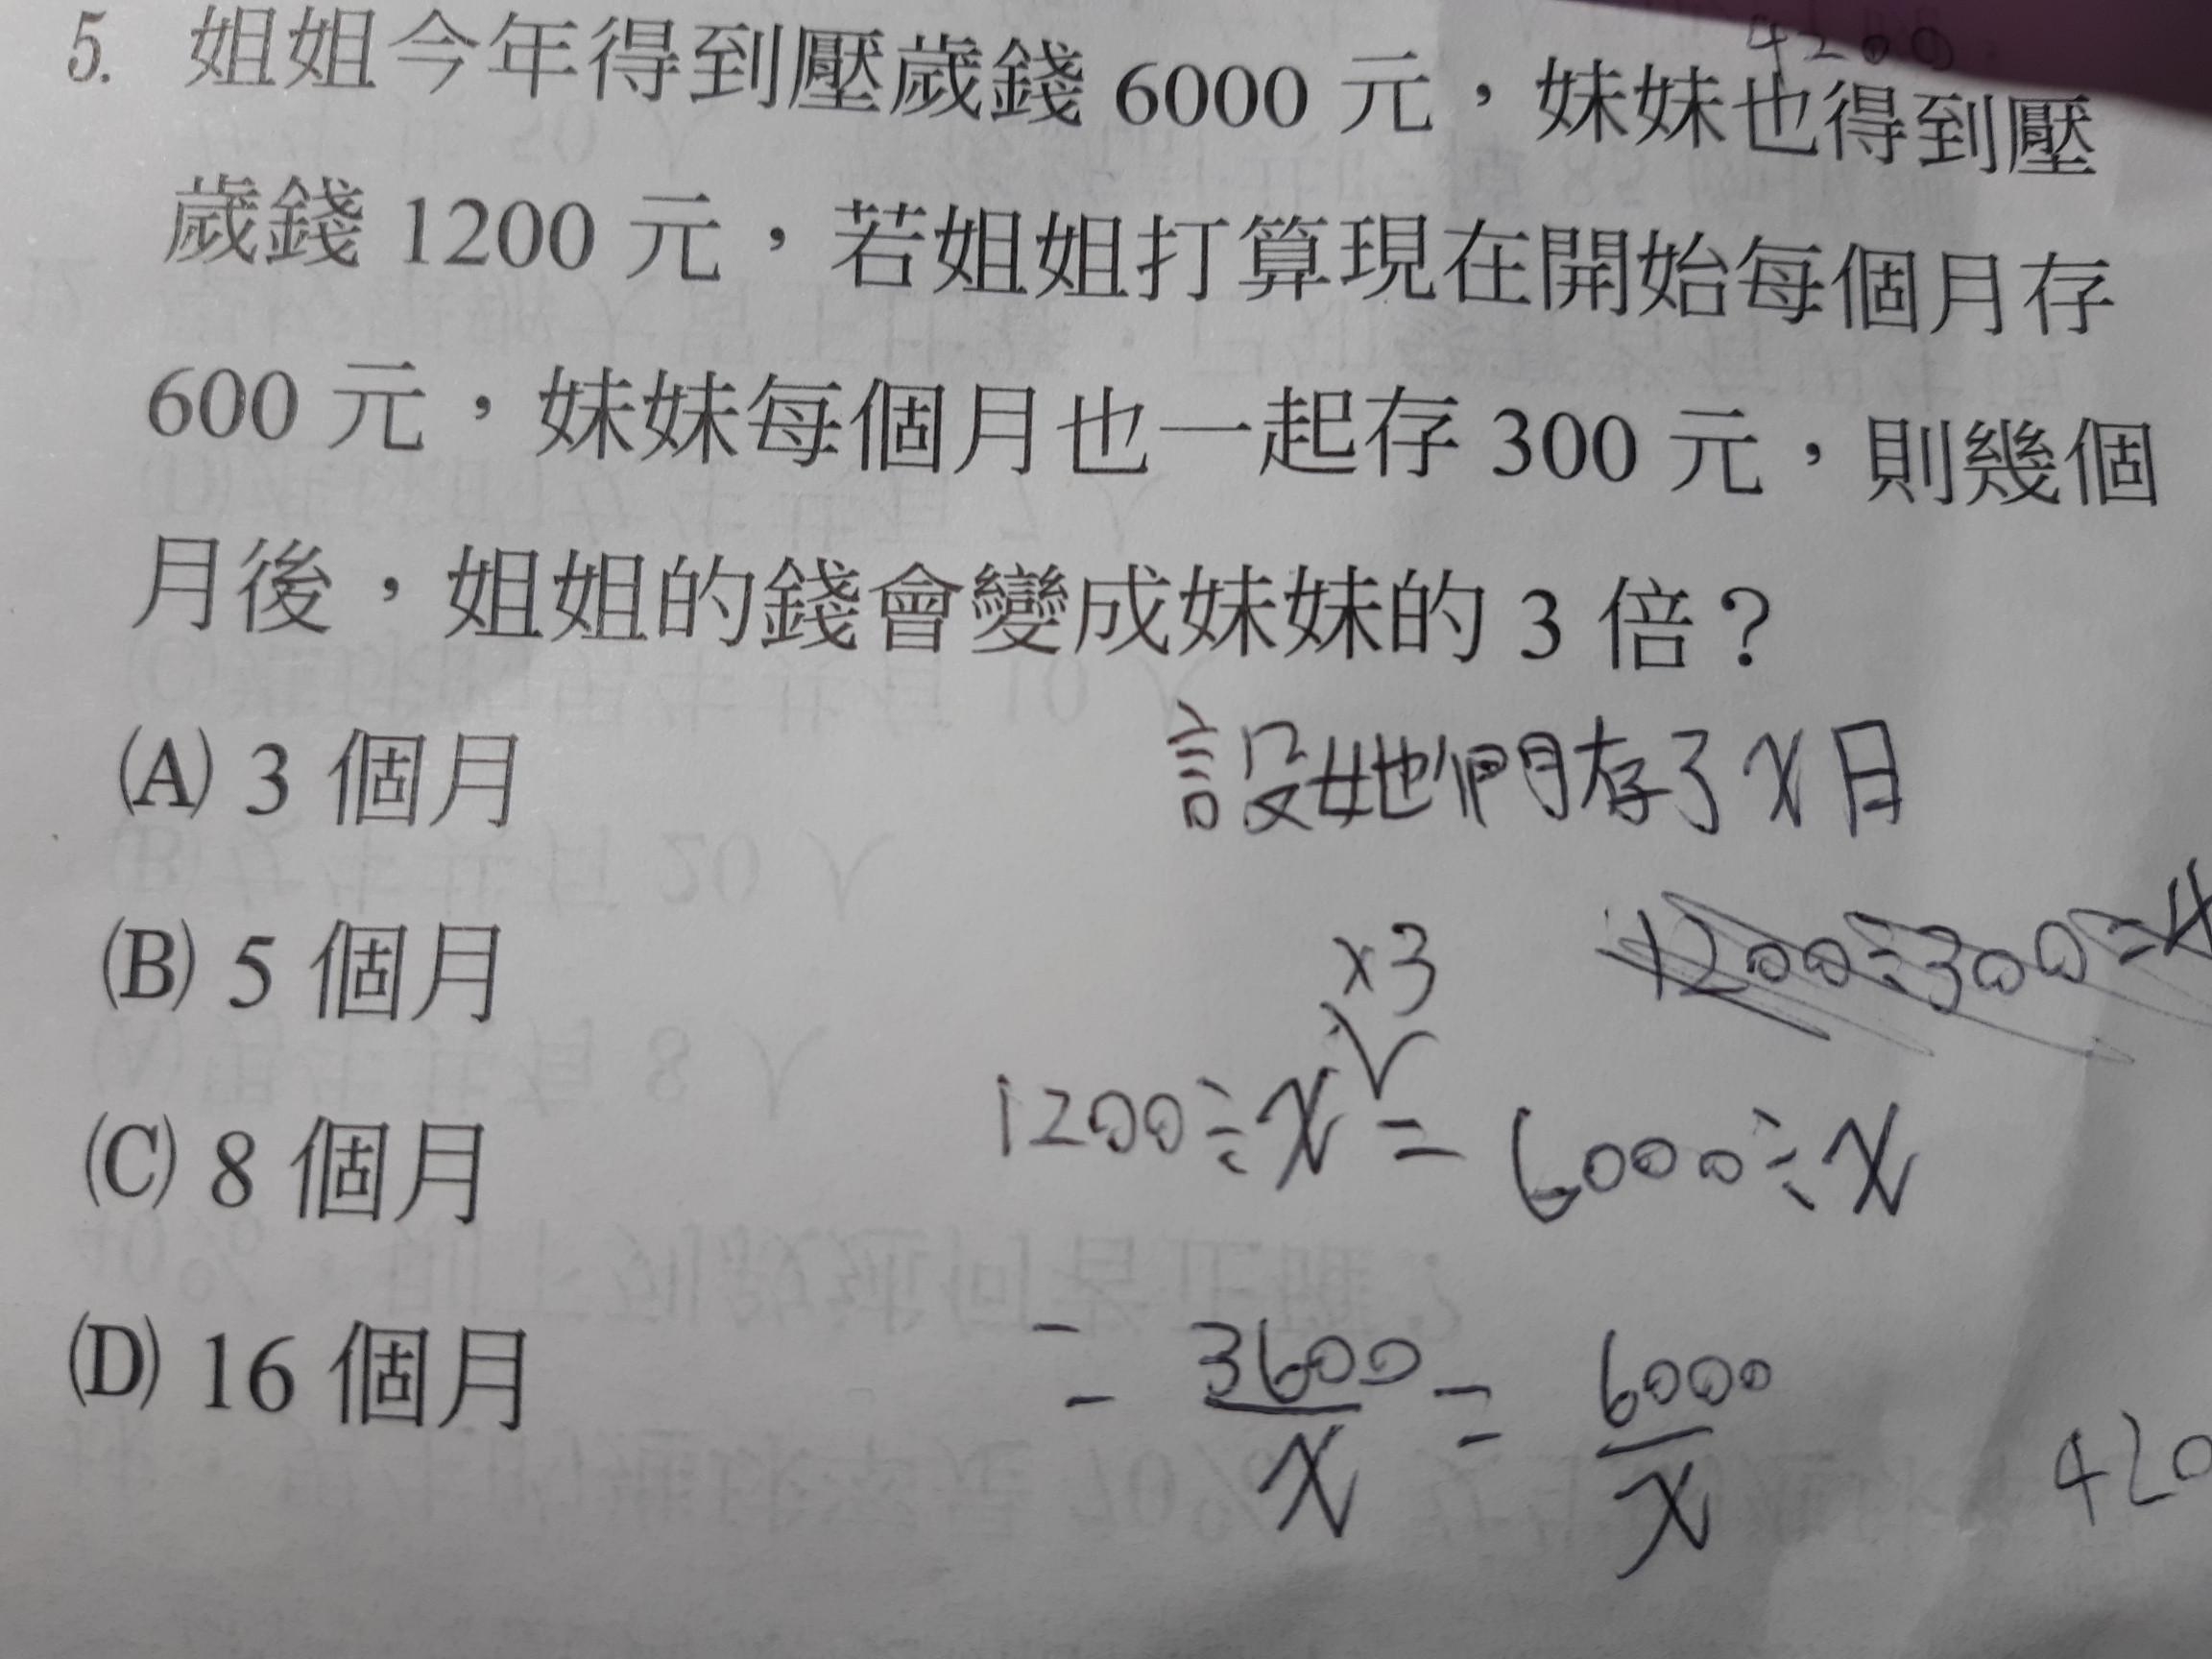 4200
5. 姐姐今年得到壓歲錢 6000 元，妹妹也得到壓
歲錢 1200 元，若姐姐打算現在開始每個月存
600 元，妹妹每個月也一起存 300 元，則幾個
月後，姐姐的錢會變成妹妹的 3 倍？
(A) 3 個月
設她們存了 x 月
(B) 5 個月
×3
1200÷300=4
(C) 8 個月
1200÷x = 6000÷x
(D) 16 個月
= 3600/x = 6000/x
420